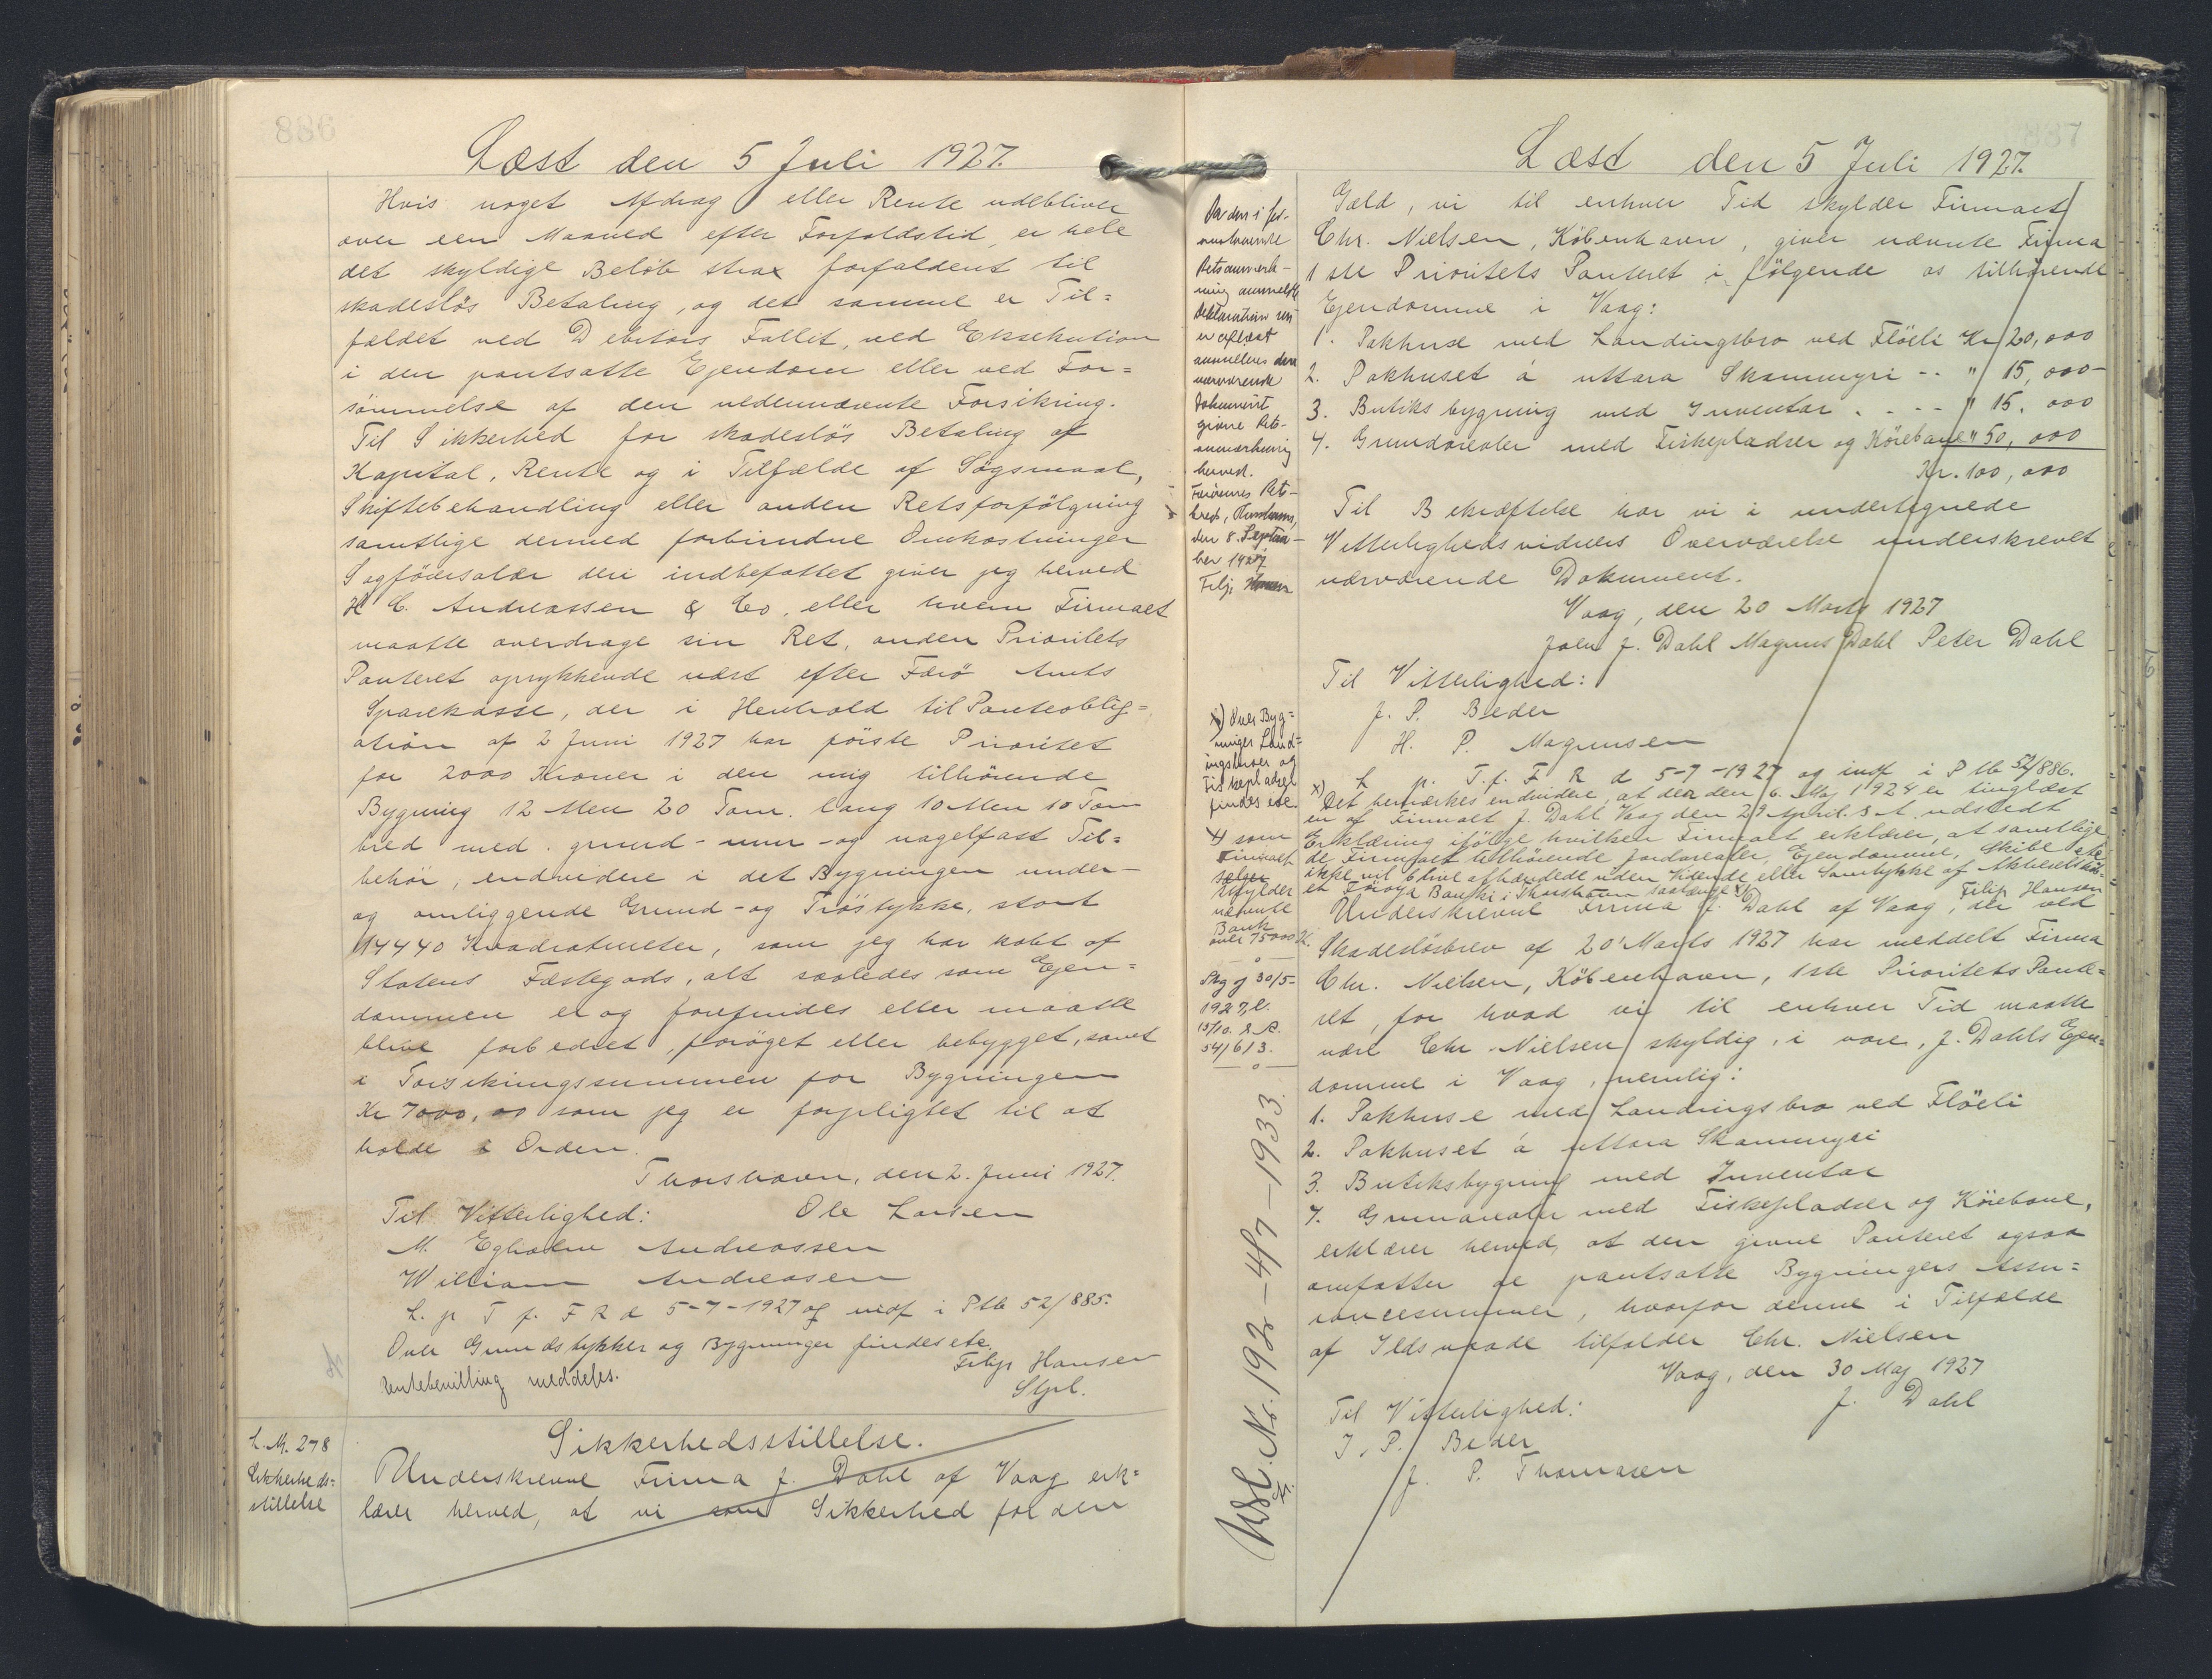 886
Læst den 5 Juli 1927.
Hvis noget Afdrag eller Rente udebliver
over een Maaned efter Forfaldstid, er hele
det skyldige Beløb strax forfaldent til
skadesløs Betaling, og det samme er Til=
fældet ved Debitors Fallit, ved Eksekution
i den pantsatte Ejendom eller ved For=
sømmelse af den nedennævnte Forsikring.
Til Sikkerhed for skadesløs Betaling af
Kapital, Rente og i Tilfælde af Søgsmaal,
Skiftebehandling eller anden Retsforfølgning
samtlige dermed forbundne Omkostninger
Sagførersalær deri indbefattet giver jeg herved
H C. Andreassen & Co. eller hvem Firmaet
maatte overdrage sin Ret, anden Prioritets
Panteret oprykkende næst efter Færø Amts
Sparekasse, der i Henhold til Panteoblig=
ation af 2 Juni 1927 har første Prioritet
for 2000 Kroner i den mig tilhørende
Bygning 12 Alen 20 Tom. lang 10 Alen 10 Tom
bred med grund- mur- og nagelfast Til=
behør, endvidere i det Bygningen under-
og omliggende Grund- og Trøstykke, stort
14440 Kvadratmeter, som jeg har købt af
Statens Fæstegods, alt saaledes som Ejen=
dommen er og forefindes eller maatte
blive forbedret, forøget eller bebygget, samt
i Forsikringssummen for Bygningen
Kr 7000,00 som jeg er forpligtet til at
holde i Orden.
Thorshavn, den 2. Juni 1927.
Til Vitterlighed: Ole Larsen
M. Egholm Andreassen
William Andreasen
L. p T f. F R d 5-7-1927 og indf i Ptb 52/885.
Over Grundstykker og Bygninger findes etc.
Filip Hansen
Rentebevilling meddeles.
Stpl.
L. M. 278
Sikkerheds=
stillelse
Sikkerhedsstillelse.
Underskrevne Firma J. Dahl af Vaag erk=
lærer herved, at vi som Sikkerhed for den
887
Læst den 5 Juli 1927.
Gæld, vi til enhver Tid skylder Firmaet
Chr. Nielsen, København, giver nævnte Firma
1ste Prioritets Panteret i følgende os tilhørende
Ejendomme i Vaag:
1. Pakhuse med Landingsbro ved Fløeli Kr 20,000
2. Pakhuset á uttara Skammyri -- " 15,000-
3. Butiksbygning med Inventar . - - - " 15,000
4. Grundarealer med Fiskepladser og Kørebane " 50,000
Kr. 100,000
Til Bekræftelse har vi i undertegnede
Vitterlighedsvidners Overværelse underskrevet
nærværende Dokument.
Vaag, den 20 Marts 1927
Joen J. Dahl Magnus Dahl Peter Dahl
Til Vitterlighed:
J. P. Beder
H. P. Magnussen
L p. T. f. F R d 5-7-1927 og indf i P tb 52/886.
x) Det bemærkes endvidere, at der den 6. Maj 1924 er tinglæst
en af Firmaet J. Dahl Vaag den 29 April s A. udstedt
Erklæring ifølge hvilken Firmaet erklærer, at samtlige
de Firmaet tilhørende Jordarealer, Ejendomme, Skibe etc
ikke vil blive afhændede uden Vidende eller Samtykke af Aktieselskab=
et Føroya Banki i Thorshavn saalænge x)
Filip Hansen
Underskrevne Firma J. Dahl af Vaag, der ved
Skadesløsbrev af 20' Marts 1927 har meddelt Firma
Chr. Nielsen, København, 1ste Prioritets Pante=
ret, for hvad vi til enhver Tid maatte
være Chr. Nielsen skyldig, i vore, J. Dahls Ejen=
domme i Vaag, nemlig:
1. Pakhuse med Landingsbro ved Fløeli
2. Pakhuset á uttara Skammyri
3. Butiksbygning med Inventar
4. Grunarealer med Fiskepladser og Kørebane,
erklærer herved, at den givne Panteret ogsaa
omfatter de pantsatte Bygningers Assu=
rancesummer, hvorfor denne i Tilfælde
af Ildsvaade tilfalder Chr. Nielsen
Vaag, den 30 Maj 1927
Til Vitterlighed: J. Dahl
J. P. Beder
J. P. Thomasen
Retsanmærk-
ning anmeldte
Deklaration
er aflæst
nærværende
Dokument
givne Ret-
anmærkning
herved.
Færøernes Ret-
kreds, Thorshavn,
den 8. Septem-
ber 1927
Filip Hansen
x) Over Byg=
ninger Land=
ingsbroer og
Fiskepladser
findes etc.
som
Firmaet
sælger
skylder
nævnte
Bank
over 75000 Kr.
Skg af 30/5-
1927, l.
13/10. s. A.
54/613.
Udsl. Nr. 192 - 4/7 - 1933.